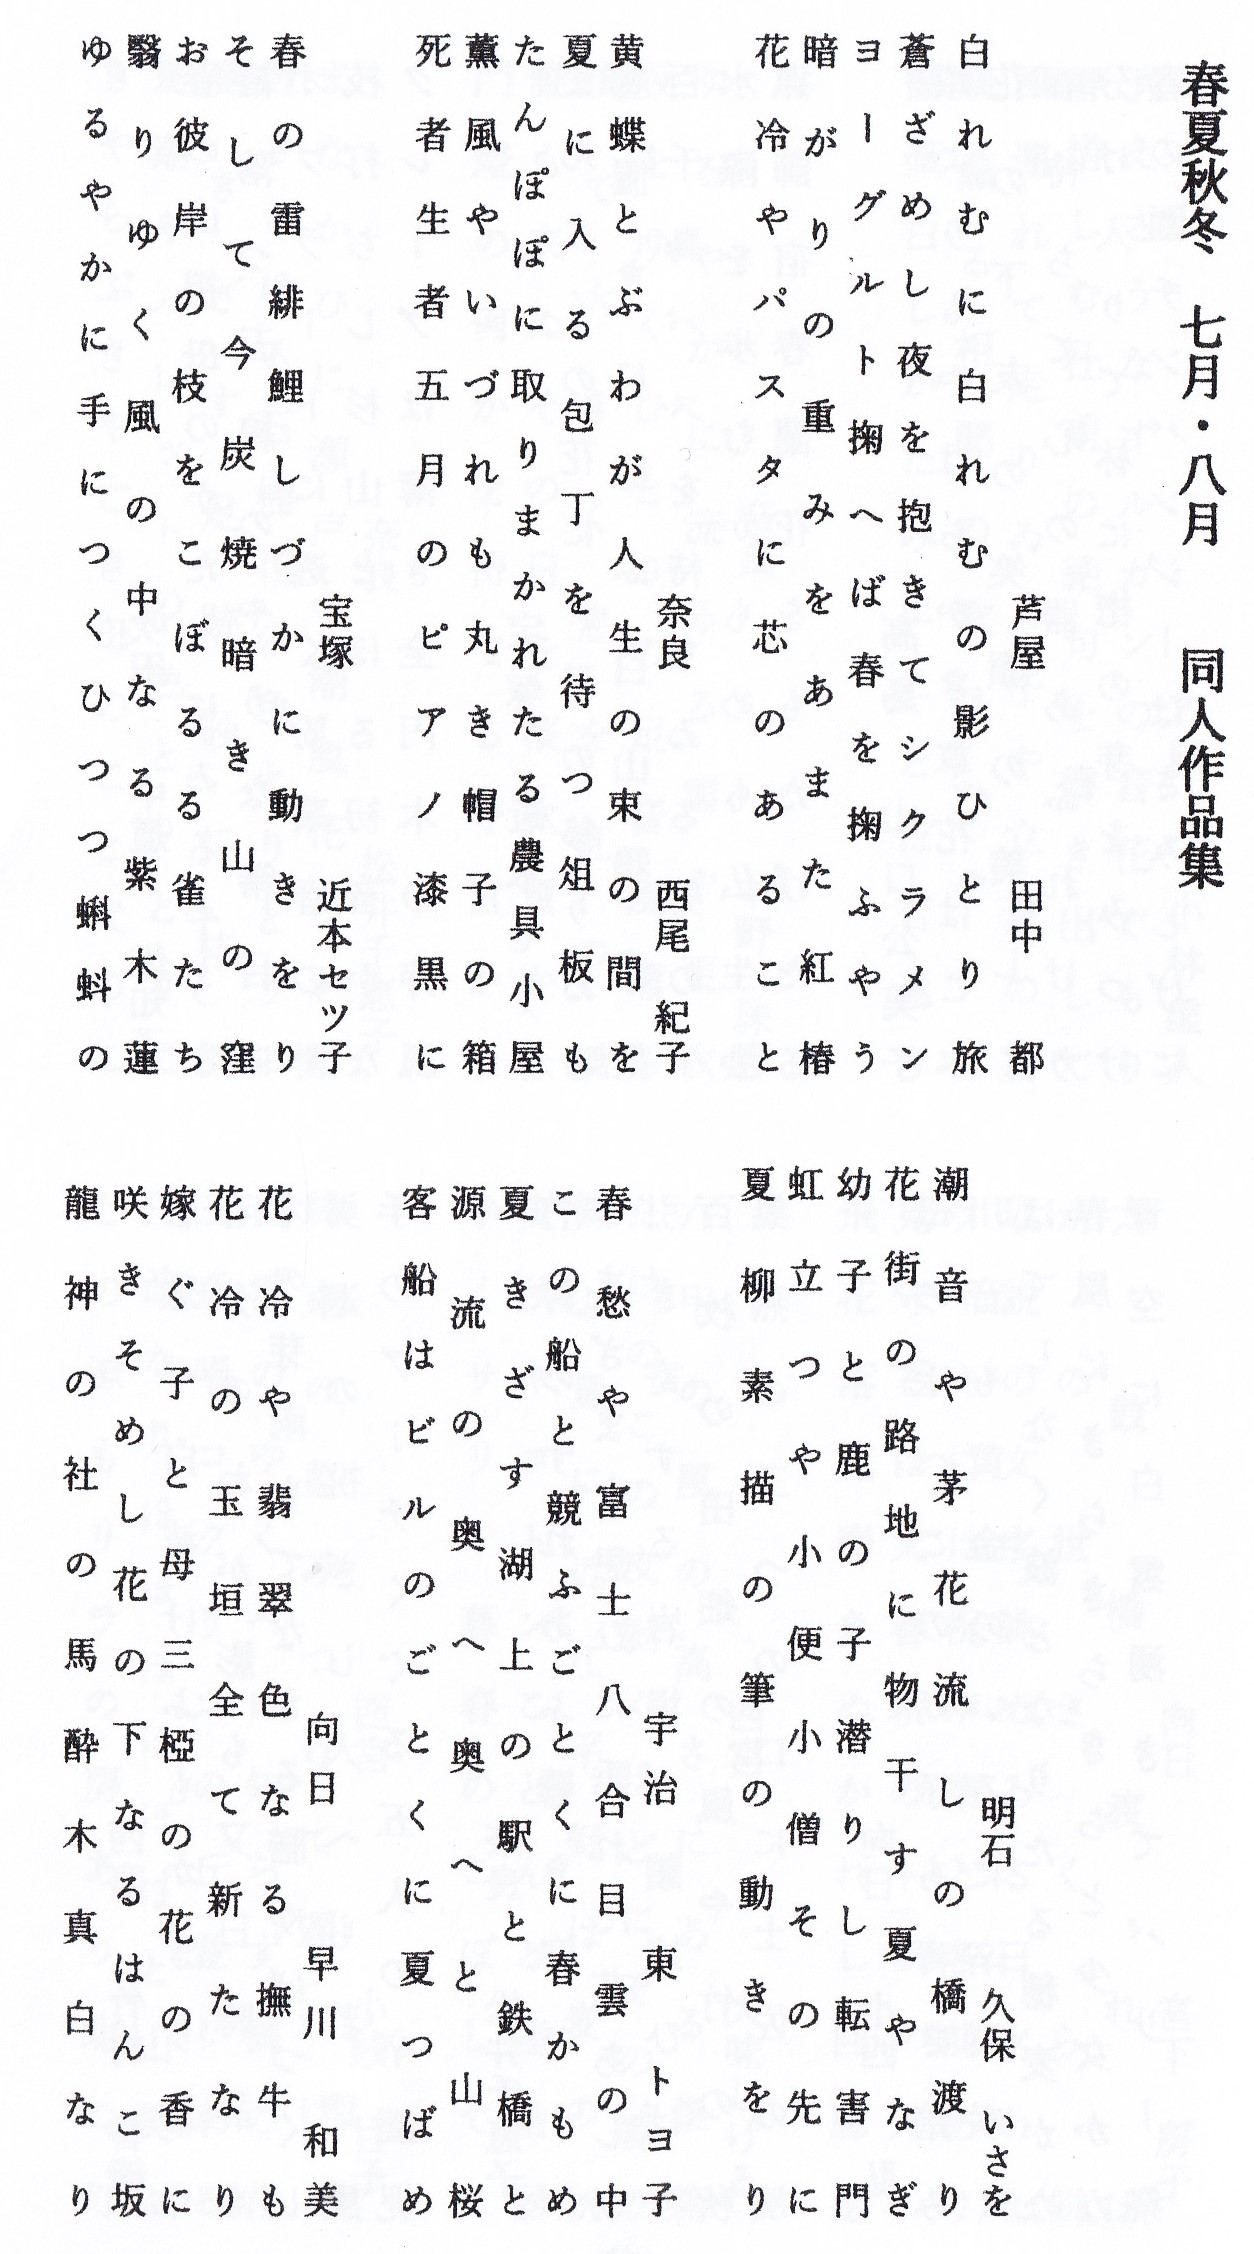 春夏秋冬　七月・八月　　同人作品集
芦屋　田中　都
白れむに白れむの影ひとり旅
蒼ざめし夜を抱きてシクラメン
ヨーグルト掬へば春を掬ふやう
暗がりの重みをあまた紅椿
花冷やパスタに芯のあること
奈良　西尾　紀子
黄蝶とぶわが人生の束の間を
夏に入る包丁を待つ俎板も
たんぽぽに取りまかれたる農具小屋
薫風やいづれも丸き帽子の箱
死者生者五月のピアノ漆黒に
宝塚　近本セツ子
春の雷緋鯉しづかに動きをり
そして今炭焼暗き山の窪
お彼岸の枝をこぼるる雀たち
翳りゆく風の中なる紫木蓮
ゆるやかに手につくひつつ蝌蚪の
明石　久保　いさを
潮音や茅花流しの橋渡り
花街の路地に物干す夏やなぎ
幼子と鹿の子潜りし転害門
虹立つや小便小僧その先に
夏柳素描の筆の動きをり
宇治　東　トヨ子
春愁や富士八合目雲の中
この船と競ふごとくに春かもめ
夏きざす湖上の駅と鉄橋と
源流の奥へ奥へと山桜
客船はビルのごとくに夏つばめ
向日　早川　和美
花冷や翡翠色なる撫牛も
花冷の玉垣全て新たなり
嫁ぐ子と母三椏の花の香に
咲きそめし花の下なるはんこ坂
龍神の社の馬酔木真白なり